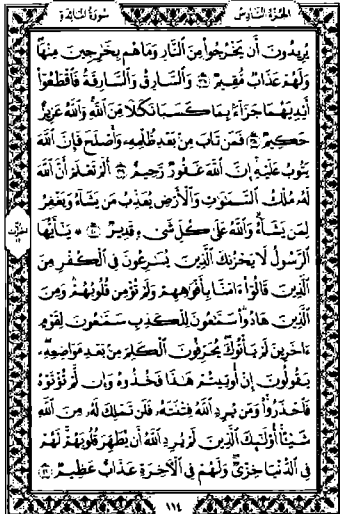 الجزء السادس
سورة المائدة
يُرِيدُونَ أَن يَخْرُجُوا۟ مِنَ ٱلنَّارِ وَمَا هُم بِخَٰرِجِينَ مِنْهَا
وَلَهُمْ عَذَابٌ مُّقِيمٌ ٣٧ وَٱلسَّارِقُ وَٱلسَّارِقَةُ فَٱقْطَعُوٓا۟
أَيْدِيَهُمَا جَزَآءًۢ بِمَا كَسَبَا نَكَٰلًا مِّنَ ٱللَّهِ وَٱللَّهُ عَزِيزٌ
حَكِيمٌ ٣٨ فَمَن تَابَ مِنۢ بَعْدِ ظُلْمِهِۦ وَأَصْلَحَ فَإِنَّ ٱللَّهَ
يَتُوبُ عَلَيْهِ إِنَّ ٱللَّهَ غَفُورٌ رَّحِيمٌ ٣٩ أَلَمْ تَعْلَمْ أَنَّ ٱللَّهَ
لَهُۥ مُلْكُ ٱلسَّمَٰوَٰتِ وَٱلْأَرْضِ يُعَذِّبُ مَن يَشَآءُ وَيَغْفِرُ
لِمَن يَشَآءُ وَٱللَّهُ عَلَىٰ كُلِّ شَىْءٍ قَدِيرٌ ٤٠ ۞ يَٰٓأَيُّهَا
ٱلرَّسُولُ لَا يَحْزُنكَ ٱلَّذِينَ يُسَٰرِعُونَ فِى ٱلْكُفْرِ مِنَ
ٱلَّذِينَ قَالُوٓا۟ ءَامَنَّا بِأَفْوَٰهِهِمْ وَلَمْ تُؤْمِن قُلُوبُهُمْ وَمِنَ
ٱلَّذِينَ هَادُوا۟ سَمَّٰعُونَ لِلْكَذِبِ سَمَّٰعُونَ لِقَوْمٍ
ءَاخَرِينَ لَمْ يَأْتُوكَ يُحَرِّفُونَ ٱلْكَلِمَ مِنۢ بَعْدِ مَوَاضِعِهِۦ
يَقُولُونَ إِنْ أُوتِيتُمْ هَٰذَا فَخُذُوهُ وَإِن لَّمْ تُؤْتَوْهُ
فَٱحْذَرُوا۟ وَمَن يُرِدِ ٱللَّهُ فِتْنَتَهُۥ فَلَن تَمْلِكَ لَهُۥ مِنَ ٱللَّهِ
شَيْـًٔا أُو۟لَٰٓئِكَ ٱلَّذِينَ لَمْ يُرِدِ ٱللَّهُ أَن يُطَهِّرَ قُلُوبَهُمْ لَهُمْ
فِى ٱلدُّنْيَا خِزْىٌ وَلَهُمْ فِى ٱلْءَاخِرَةِ عَذَابٌ عَظِيمٌ ٤١
١١٤